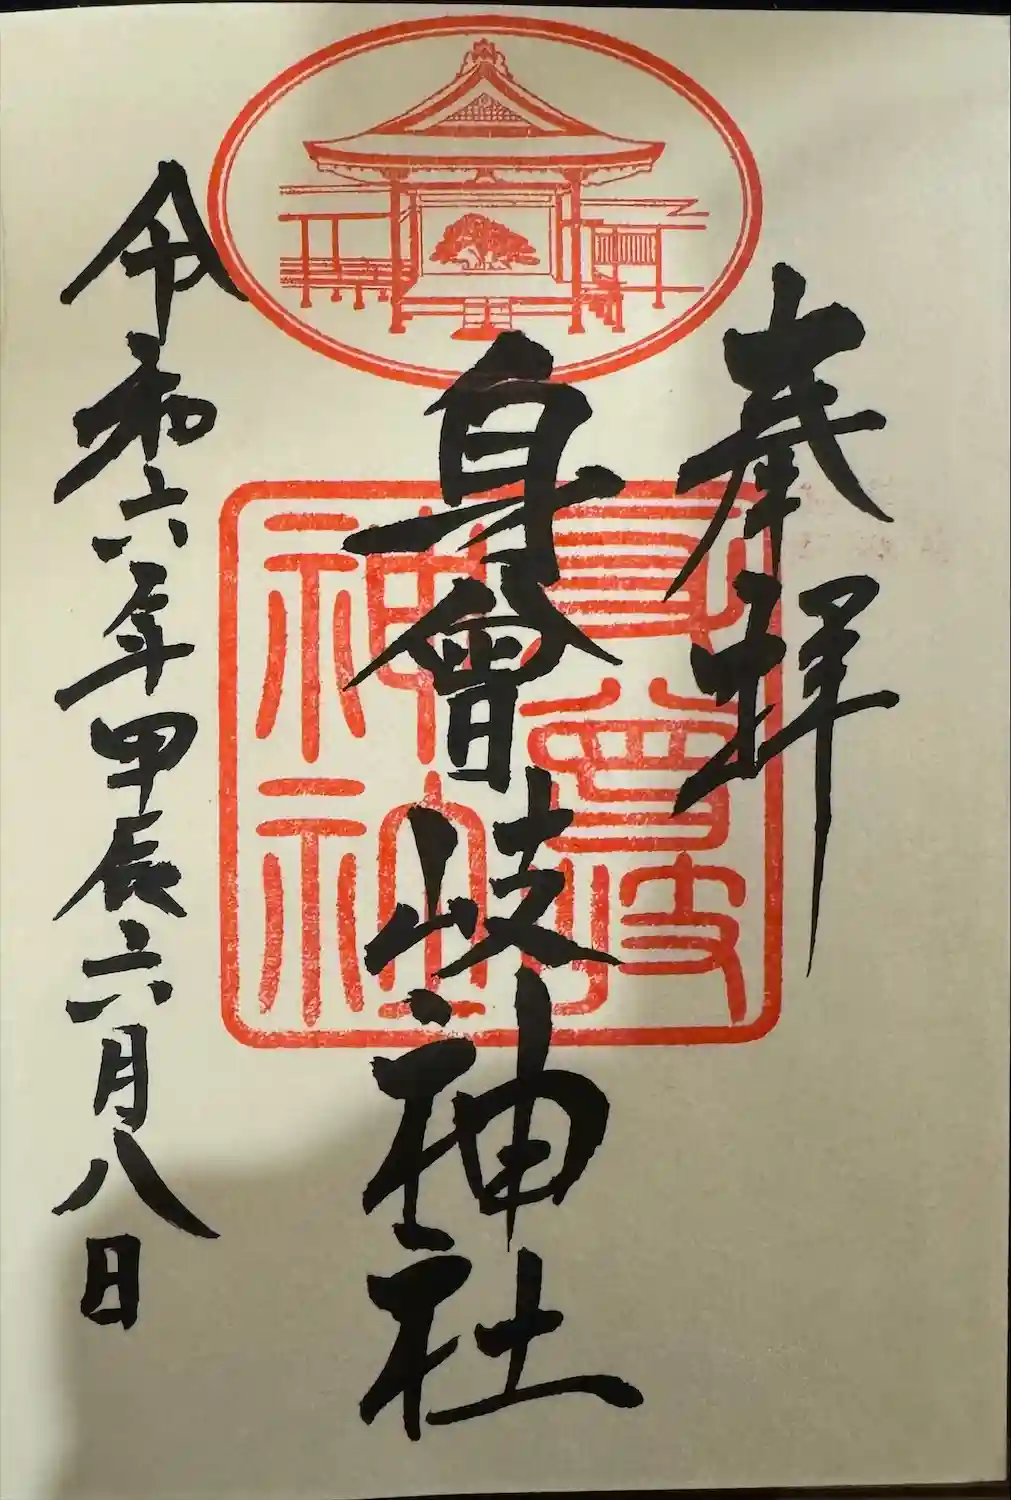 奉拝
身曾岐神社
令和六年甲辰六月八日
身曾岐
神社